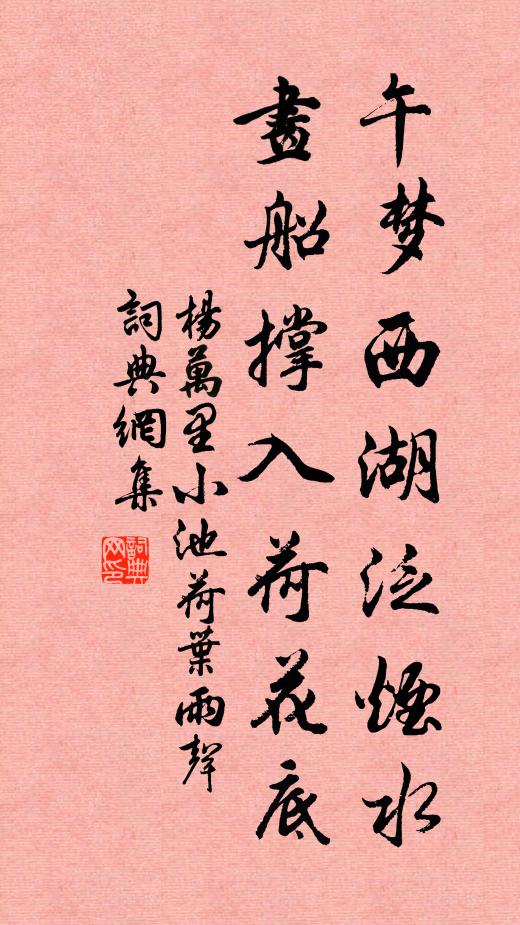 午梦西湖泛煙水
畫船撑入荷花底
楊萬里小池荷葉雨聲
詞典網集
詞典网印